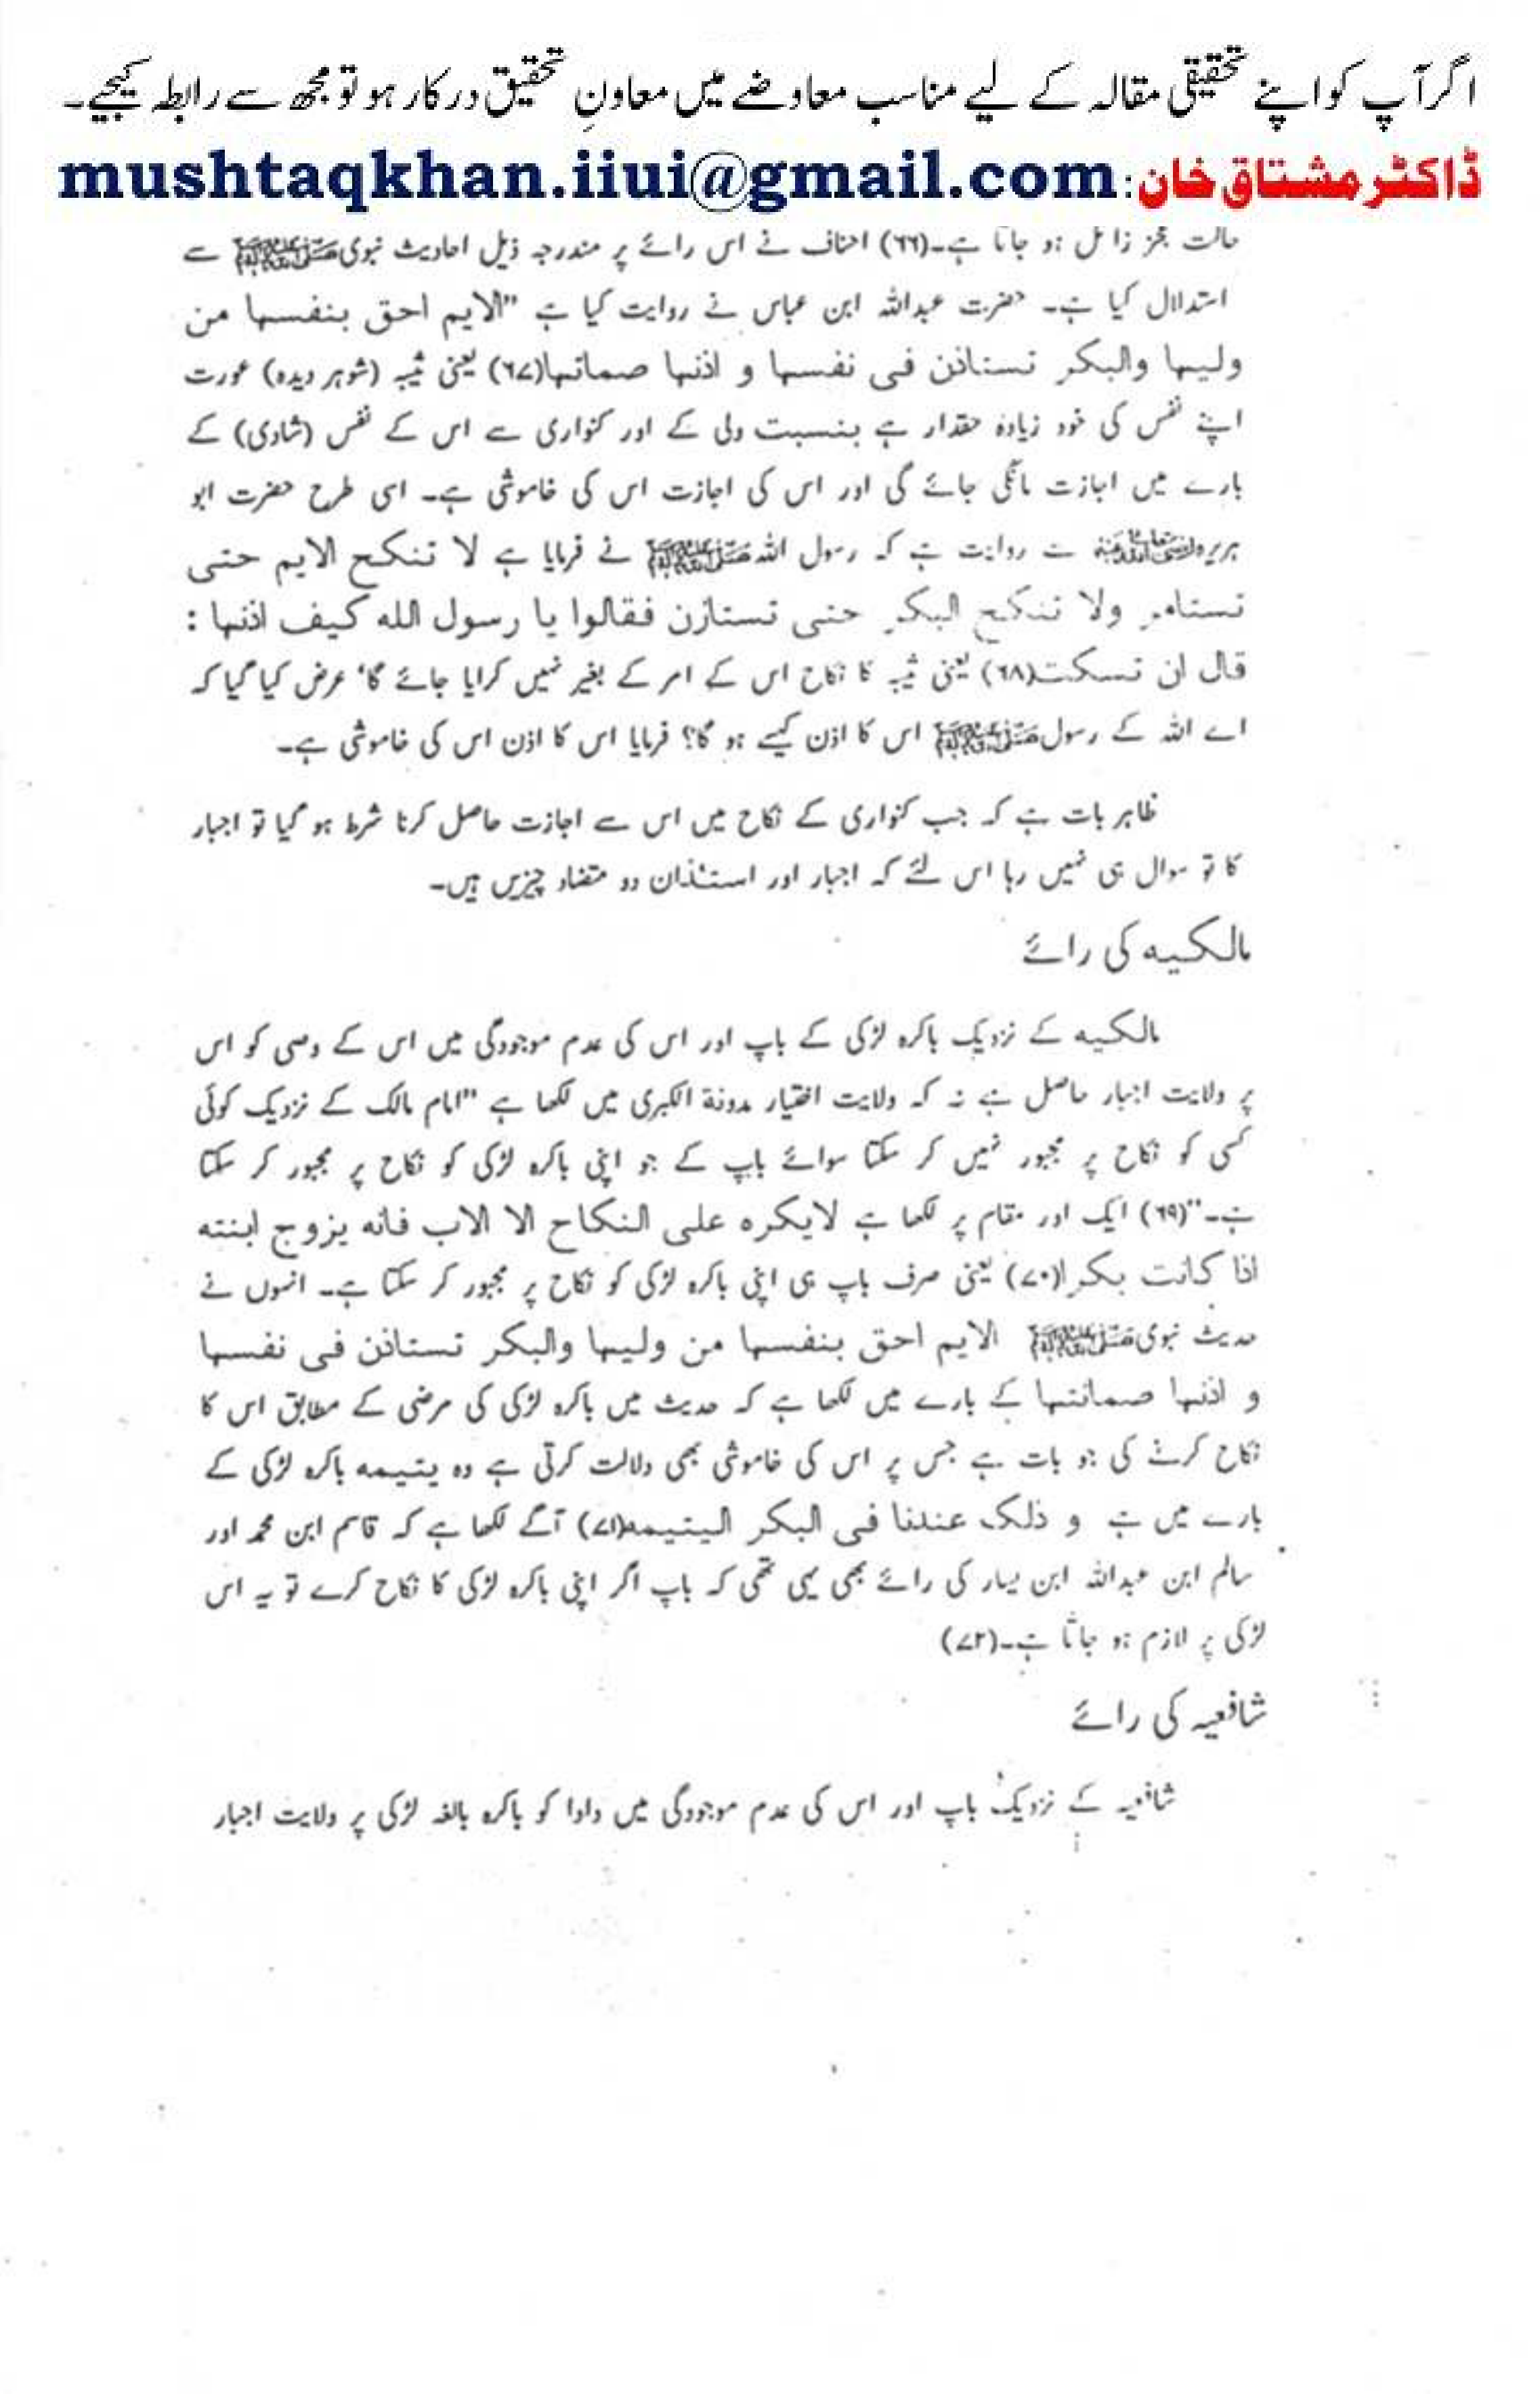 اگر آپ کو اپنے تحقیقی مقالہ کے لیے مناسب معاوضے میں معاونِ تحقیق درکار ہو تو مجھ سے رابطہ کیجیے۔
ڈاکٹر مشتاق خان: mushtaqkhan.iiui@gmail.com
حالت عجز زائل ہو جاتا ہے۔(۶۶) احناف نے اس رائے پر مندرجہ ذیل احادیث نبوی ﷺ سے
استدلال کیا ہے۔ حضرت عبداللہ ابن عباس نے روایت کیا ہے "الایم احق بنفسہا من
ولیہا والبکر تستاذن فی نفسہا و اذنہا صماتہا(۶۷) یعنی ثیبہ (شوہر دیدہ) عورت
اپنے نفس کی خود زیادہ حقدار ہے بنسبت ولی کے اور کنواری سے اس کے نفس (شادی) کے
بارے میں اجازت مانگی جائے گی اور اس کی اجازت اس کی خاموشی ہے۔ اسی طرح حضرت ابو
ہریرہ رضی اللہ تعالیٰ عنہ سے روایت ہے کہ رسول اللہ ﷺ نے فرمایا ہے لا تنکح الایم حتی
تستامر ولا تنکح البکر حتی تستازن فقالوا یا رسول اللہ کیف اذنہا :
قال ان تسکت(۶۸) یعنی ثیبہ کا نکاح اس کے امر کے بغیر نہیں کرایا جائے گا، عرض کیا گیا کہ
اے اللہ کے رسول ﷺ اس کا اذن کیسے ہو گا؟ فرمایا اس کا اذن اس کی خاموشی ہے۔
ظاہر بات ہے کہ جب کنواری کے نکاح میں اس سے اجازت حاصل کرنا شرط ہو گیا تو اجبار
کا تو سوال ہی نہیں رہا اس لئے کہ اجبار اور استئذان دو متضاد چیزیں ہیں۔
مالکیہ کی رائے
مالکیہ کے نزدیک باکرہ لڑکی کے باپ اور اس کی عدم موجودگی میں اس کے وصی کو اس
پر ولایت اجبار حاصل ہے نہ کہ ولایت اختیار مدونۃ الکبری میں لکھا ہے "امام مالک کے نزدیک کوئی
کسی کو نکاح پر مجبور نہیں کر سکتا سوائے باپ کے جو اپنی باکرہ لڑکی کو نکاح پر مجبور کر سکتا
ہے۔"(۶۹) ایک اور مقام پر لکھا ہے لایکرہ علی النکاح الا الاب فانہ یزوج ابنتہ
اذا کانت بکرا(۷۰) یعنی صرف باپ ہی اپنی باکرہ لڑکی کو نکاح پر مجبور کر سکتا ہے۔ انہوں نے
حدیث نبوی ﷺ الایم احق بنفسہا من ولیہا والبکر تستاذن فی نفسہا
و اذنہا صماتتہا کے بارے میں لکھا ہے کہ حدیث میں باکرہ لڑکی کی مرضی کے مطابق اس کا
نکاح کرنے کی جو بات ہے جس پر اس کی خاموشی بھی دلالت کرتی ہے وہ یتیمہ باکرہ لڑکی کے
بارے میں ہے و ذلک عندنا فی البکر الیتیمہ(۷۱) آگے لکھا ہے کہ قاسم ابن محمد اور
سالم ابن عبداللہ ابن یسار کی رائے بھی یہی تھی کہ باپ اگر اپنی باکرہ لڑکی کا نکاح کرے تو یہ اس
لڑکی پر لازم ہو جاتا ہے۔(۷۲)
شافعیہ کی رائے
شافعیہ کے نزدیک باپ اور اس کی عدم موجودگی میں دادا کو باکرہ بالغہ لڑکی پر ولایت اجبار